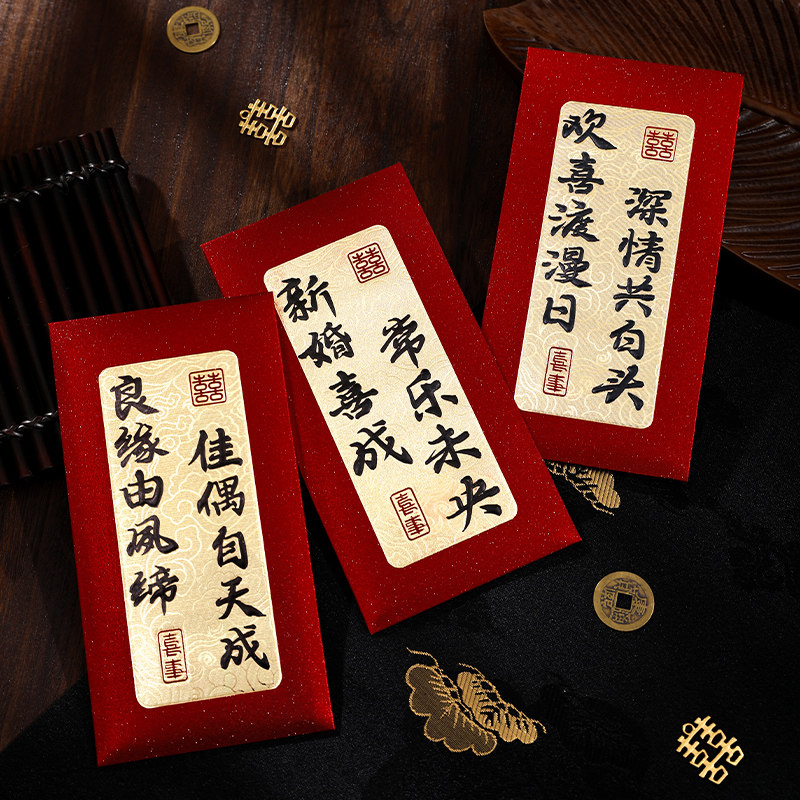 囍
良缘由夙缔
佳偶自天成
喜事
囍
新婚喜成
常乐未央
喜事
囍
欢喜渡漫日
深情共白头
喜事
囍
囍